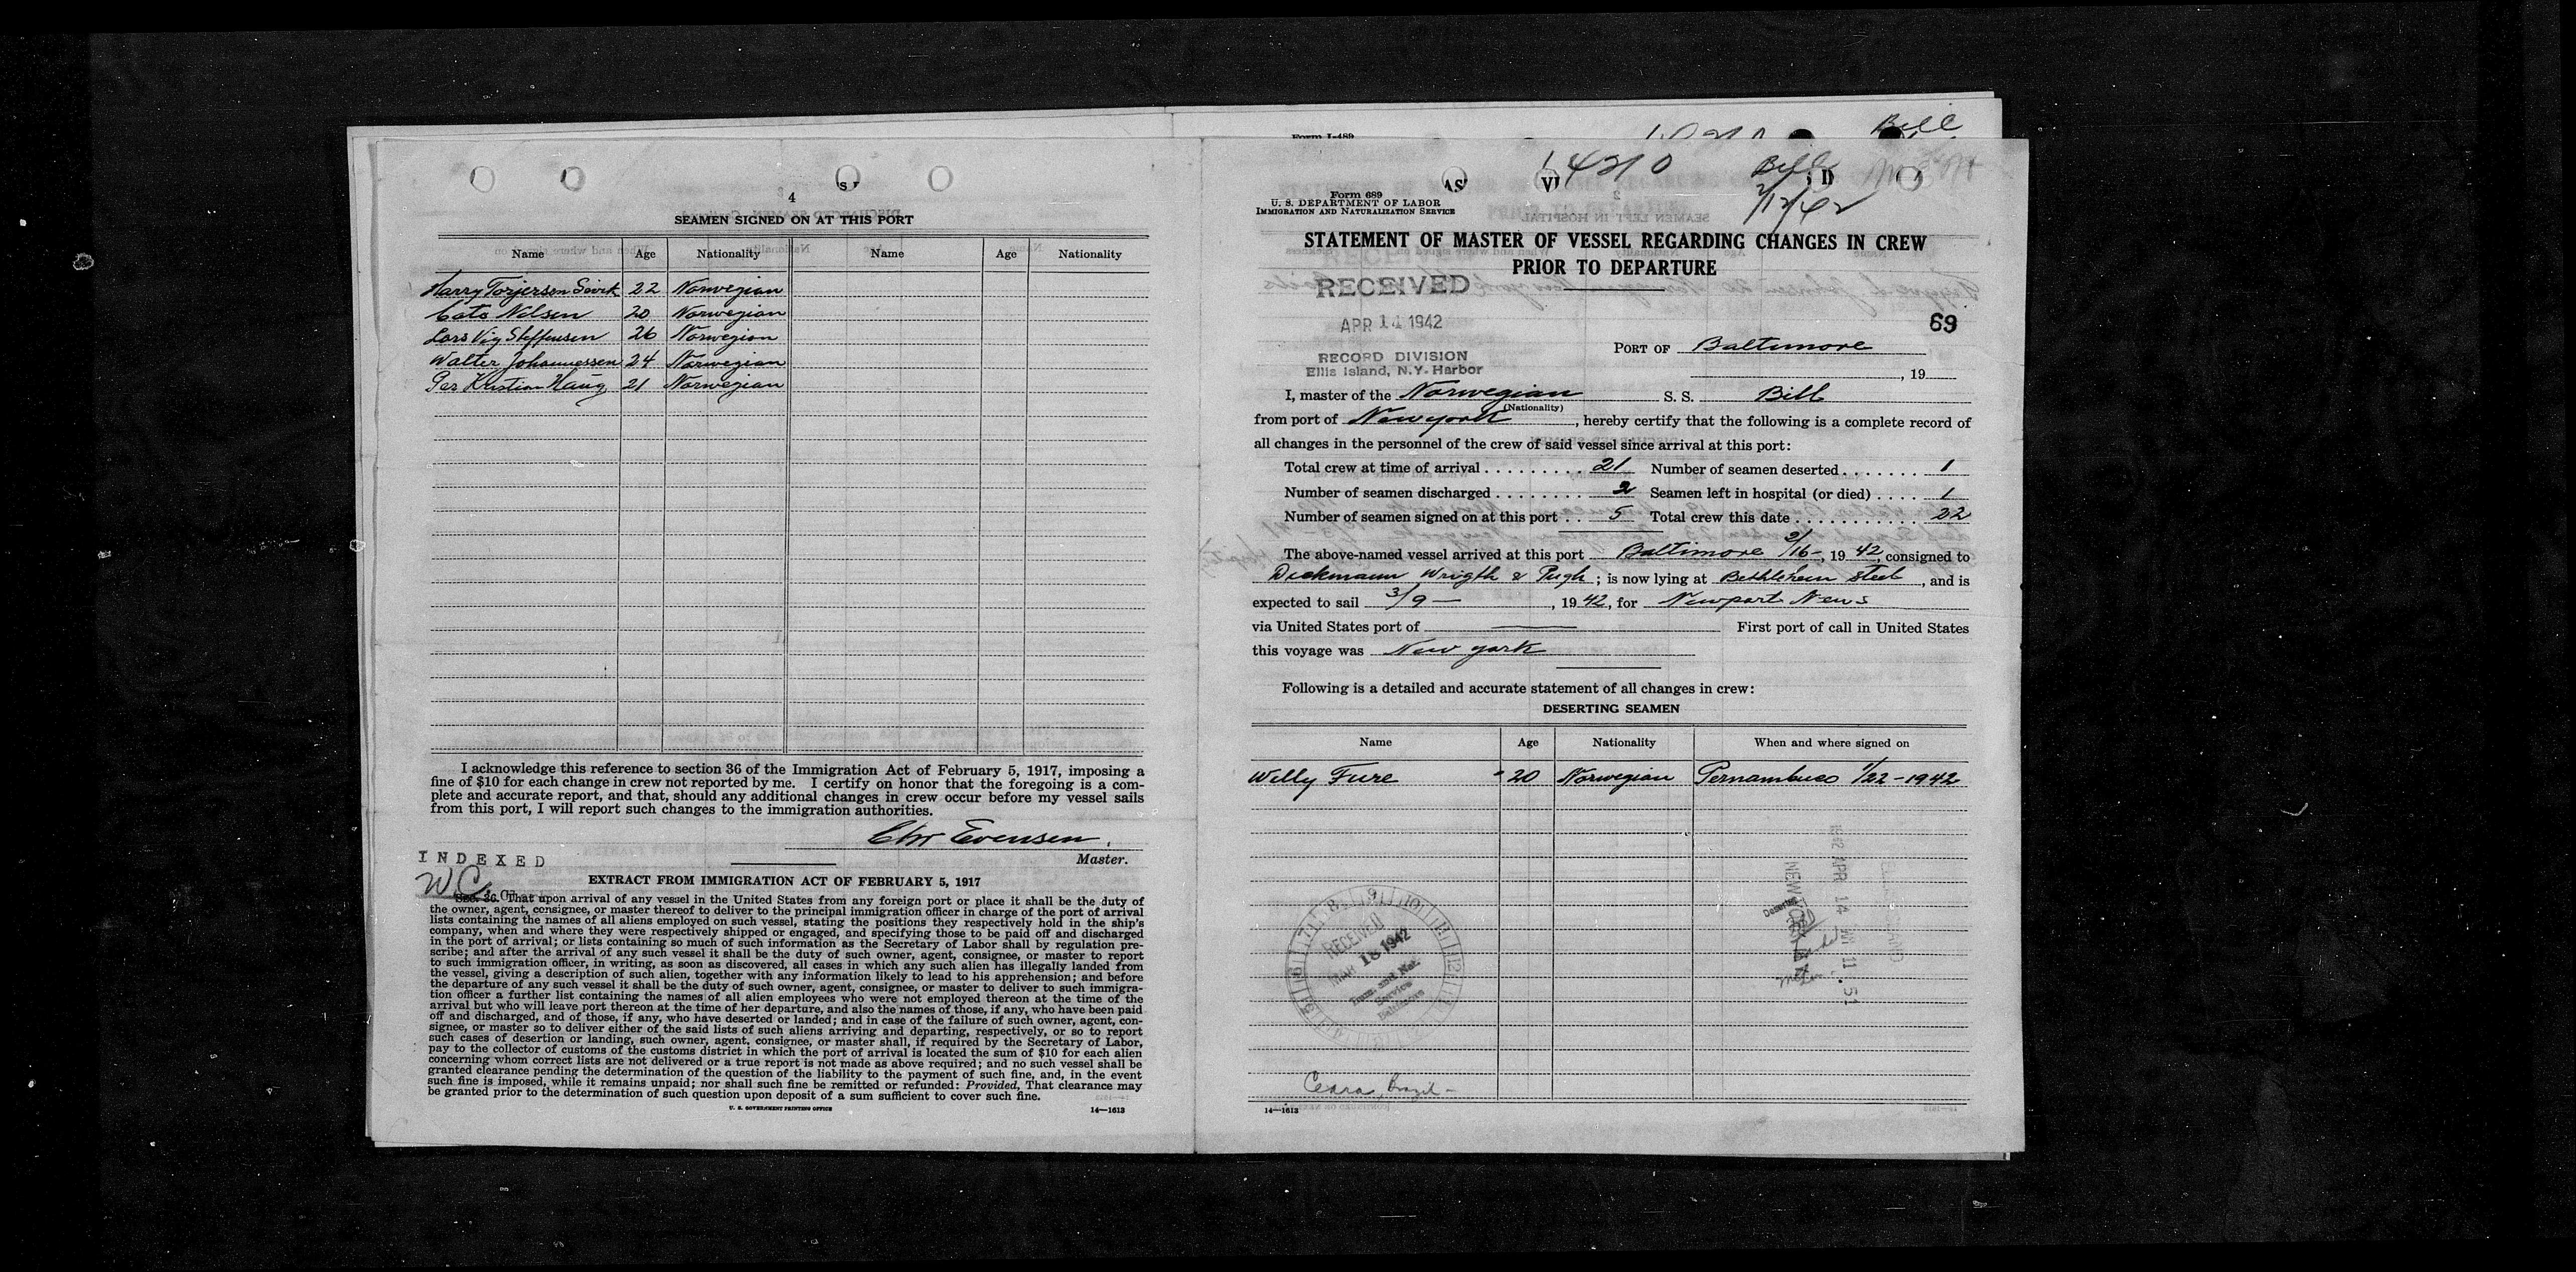 4
SEAMEN SIGNED ON AT THIS PORT
Name Age Nationality Name Age Nationality
Harry Torjersen Sivik 22 Norwegian
Cato Nilsen 20 Norwegian
Lars Vig Steffensen 26 Norwegian
Walter Johannessen 24 Norwegian
Per Kristian Haug 21 Norwegian
I acknowledge this reference to section 36 of the Immigration Act of February 5, 1917, imposing a
fine of $10 for each change in crew not reported by me. I certify on honor that the foregoing is a com-
plete and accurate report, and that, should any additional changes in crew occur before my vessel sails
from this port, I will report such changes to the immigration authorities.
Chr Evensen
Master.
INDEXED
W.C.
EXTRACT FROM IMMIGRATION ACT OF FEBRUARY 5, 1917
Sec. 36. That upon arrival of any vessel in the United States from any foreign port or place it shall be the duty of
the owner, agent, consignee, or master thereof to deliver to the principal immigration officer in charge of the port of arrival
lists containing the names of all aliens employed on such vessel, stating the positions they respectively hold in the ship's
company, when and where they were respectively shipped or engaged, and specifying those to be paid off and discharged
in the port of arrival; or lists containing so much of such information as the Secretary of Labor shall by regulation pre-
scribe; and after the arrival of any such vessel it shall be the duty of such owner, agent, consignee, or master to report
to such immigration officer, in writing, as soon as discovered, all cases in which any such alien has illegally landed from
the vessel, giving a description of such alien, together with any information likely to lead to his apprehension; and before
the departure of any such vessel it shall be the duty of such owner, agent, consignee, or master to deliver to such immigra-
tion officer a further list containing the names of all alien employees who were not employed thereon at the time of the
arrival but who will leave port thereon at the time of her departure, and also the names of those, if any, who have been paid
off and discharged, and of those, if any, who have deserted or landed; and in case of the failure of such owner, agent, con-
signee, or master so to deliver either of the said lists of such aliens arriving and departing, respectively, or so to report
such cases of desertion or landing, such owner, agent, consignee, or master shall, if required by the Secretary of Labor,
pay to the collector of customs of the customs district in which the port of arrival is located the sum of $10 for each alien
concerning whom correct lists are not delivered or a true report is not made as above required; and no such vessel shall be
granted clearance pending the determination of the question of the liability to the payment of such fine, and, in the event
such fine is imposed, while it remains unpaid; nor shall such fine be remitted or refunded: Provided, That clearance may
be granted prior to the determination of such question upon deposit of a sum sufficient to cover such fine.
U. S. GOVERNMENT PRINTING OFFICE 14—1613
Form I-489
Bill
14210 Bill
2/12/42
Form 689
U. S. DEPARTMENT OF LABOR
IMMIGRATION AND NATURALIZATION SERVICE
STATEMENT OF MASTER OF VESSEL REGARDING CHANGES IN CREW
PRIOR TO DEPARTURE
RECEIVED
APR 14 1942
RECORD DIVISION
Ellis Island, N.Y. Harbor
69
PORT OF Baltimore
, 19
I, master of the Norwegian S. S. Bill
(Nationality)
from port of New york, hereby certify that the following is a complete record of
all changes in the personnel of the crew of said vessel since arrival at this port:
Total crew at time of arrival 21 Number of seamen deserted 1
Number of seamen discharged 2 Seamen left in hospital (or died) 1
Number of seamen signed on at this port 5 Total crew this date 22
The above-named vessel arrived at this port Baltimore 2/16-, 1942, consigned to
Dickmann Wrigth & Pugh; is now lying at Bethlehem Steel, and is
expected to sail 3/9 —, 1942, for Newport News
via United States port of — First port of call in United States
this voyage was New york
Following is a detailed and accurate statement of all changes in crew:
DESERTING SEAMEN
Name Age Nationality When and where signed on
Willy Fure 20 Norwegian Pernambuco 1/22-1942
1942 APR 14 AM 11.51
RECEIVED
MAR 18 1942
Imm. and Nat.
Service
Baltimore
Ceara, Brazil -
14—1613